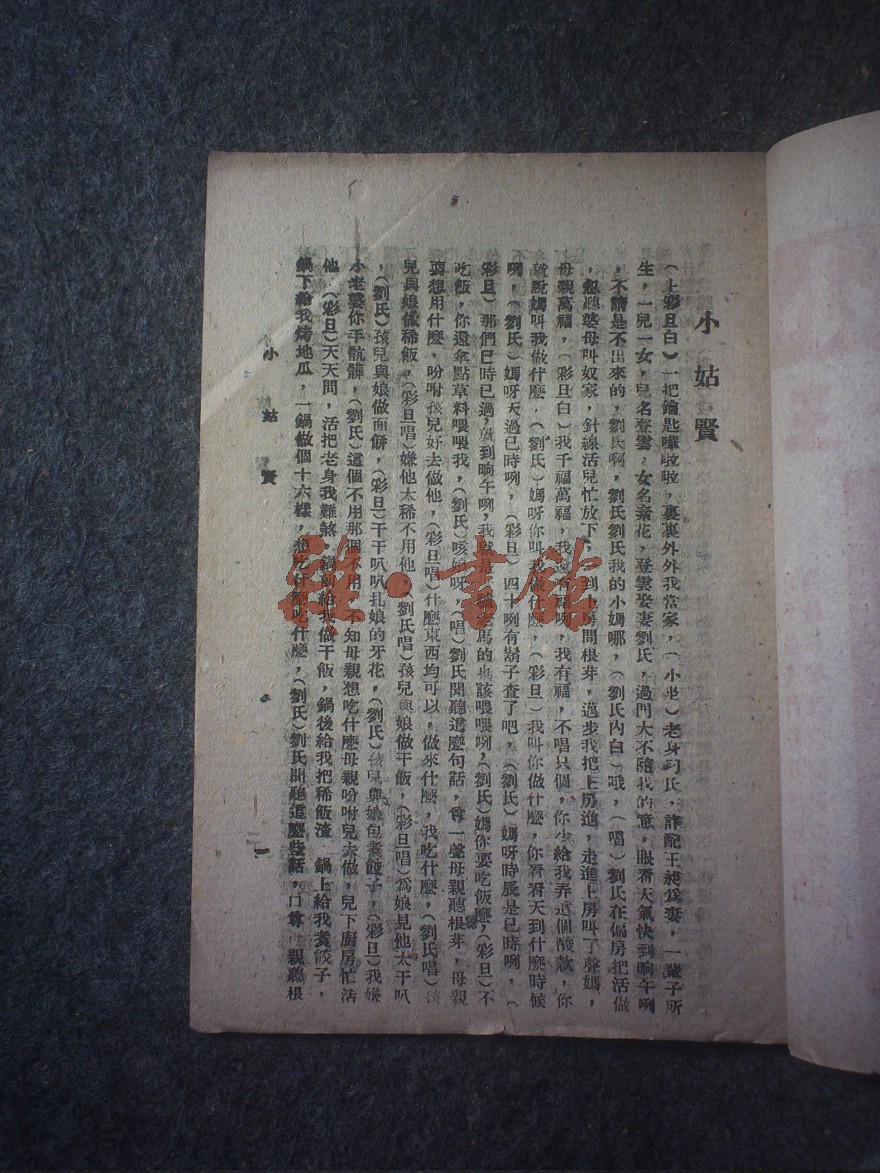 小姑賢
(上彩旦白)一把鑰匙嘩啦啦，裏裏外外我當家，(小坐)老身刁氏，許配王昶為妻，一輩子所
生，一兒一女，兒名登雲，女名素花，登雲娶妻劉氏，過門大不隨我的意，眼看天氣快到晌午咧
，不請是不出來的，劉氏啊，劉氏劉氏我的小媽哪，(劉氏內白)哦，(唱)劉氏在偏房把活做
，忽聽婆母叫奴家，針線活兒忙放下，到上房問根芽，邁步我把上房進，走進上房叫了聲媽，
母親萬福，(彩旦白)我千福萬福，我沒有福咧，我有福，不唱只個，你少給我弄這個酸款，你
就說媽叫我做什麼，(劉氏)媽呀你叫我做什麼，(彩旦)我叫你做什麼，你看看天到什麼時候
咧，(劉氏)媽呀天過巳時咧，(彩旦)四十咧有鬍子查了吧，(劉氏)媽呀時辰是巳時咧，(
彩旦)那們巳時已過，就到晌午咧，我就是 馬的也該喂喂咧，(劉氏)媽你要吃飯麼，(彩旦)不
吃飯，你還拿點草料喂喂我，(劉氏)咳媽呀，(唱)劉氏聞聽這麼句話，尊一聲母親聽根芽，母親
要想用什麼，吩咐孩兒好去做他，(彩旦唱)什麼東西均可以，做來什麼，我吃什麼，(劉氏唱)孩
兒與娘做稀飯，(彩旦唱)嫌他太稀不用他，(劉氏唱)孩兒與娘做干飯，(彩旦唱)為娘見他太干叭
，(劉氏)孩兒與娘做面餅，(彩旦)干干叭叭扎娘的牙花，(劉氏)孩兒與娘包煮餃子，(彩旦)我嫌
小老婆你手骯髒，(劉氏)這個不用那個不用，不知母親想吃什麼母親吩咐兒去做，兒下廚房忙活
他，(彩旦)天天問，活把老身我難煞，鍋 給我做干飯，鍋後給我把稀飯渣，鍋上給我煮餃子，
鍋下給我烤地瓜，一鍋做個十六樣，想吃什麼吃什麼，(劉氏)劉氏聞聽這麼些話，口尊 親聽根
小姑賢
一
雜·書館